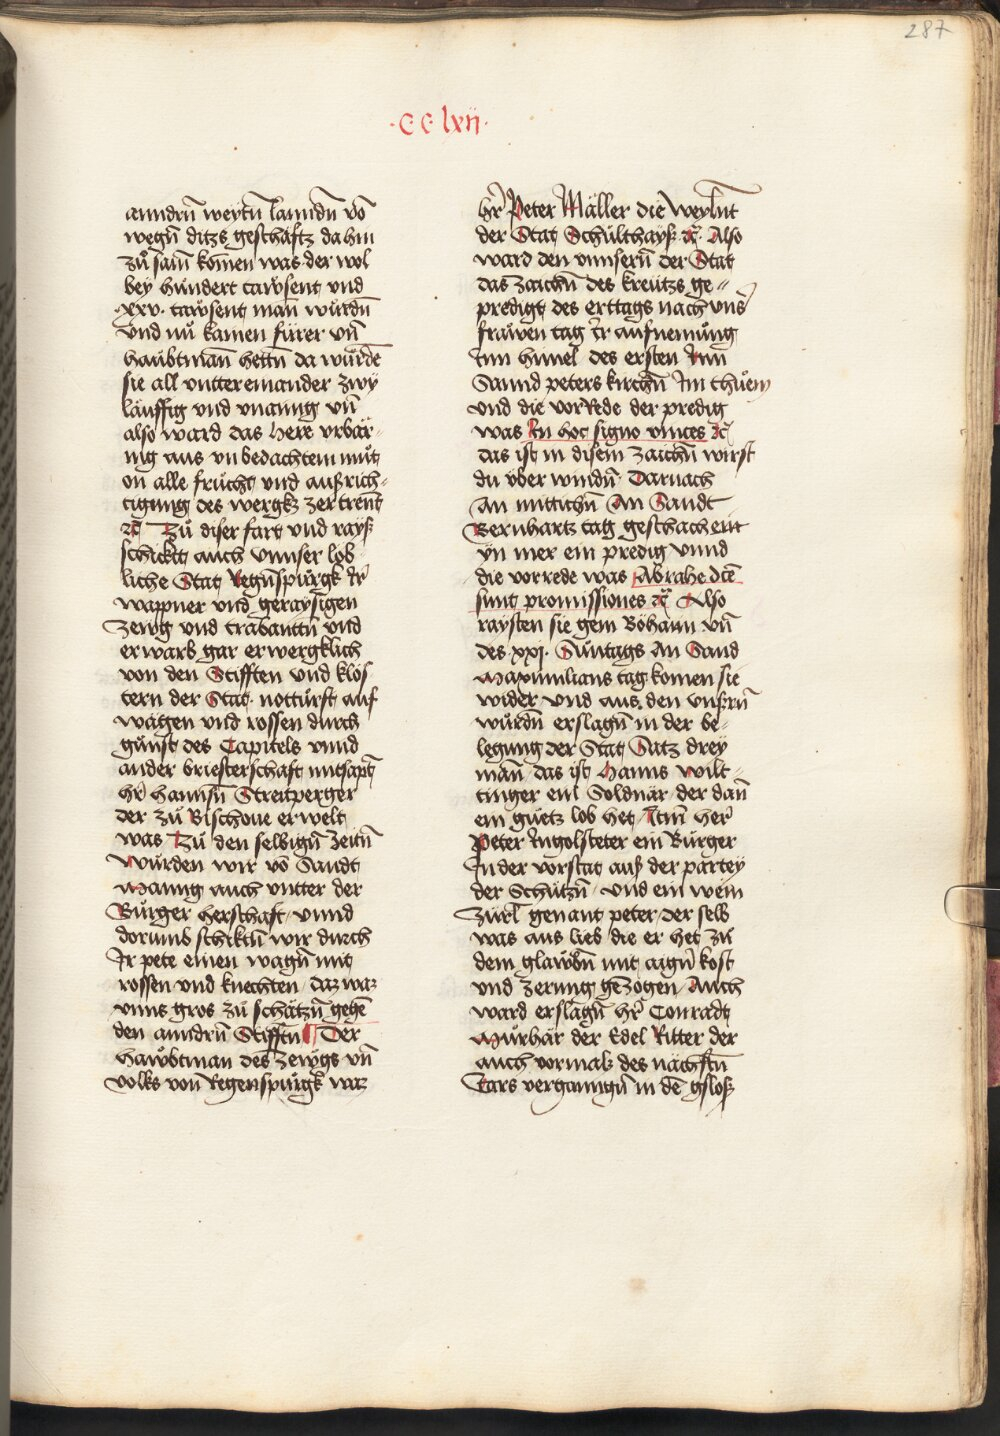 287
·CClxij·
anndrn̄ weytn̄ lanndn̄ vō
wegn̄ ditzs geschäftz da hin
zůsam komen was der wol
bey hůndert tawsent vnd
·xxv· tawsent man wurdn̄
vnd nů kamen fürer vn̄
haubtman hettn̄ da wurdē
sie all vnttereinander zwy
läuffig vnd vnainig vn̄
also ward das here vrbär-
nig aus vnbedachtem můt
on alle frücht vnd außrich-
tigung des wergks zertrent
⁊c̄ Zů diser fart vnd rayß
schicktt auch vnnser löb
liche Stat Regenspurgk Ir
wappner vnd geraysigen
zewg vnd trabanttn̄ vnd
erwarb gar erwergklich
von den Stifften vnd klös
tern der Stat notturft auf
wägen vnd rossen durch
gunst des Capitels vnnd
ander briesterschaft mitsapt
hr̄ hannsn̄ Streitperger
der zů Bischoue erwelt
was Zů den selbign̄ zeitn̄
wurden wir vō Sandt
Manng auch vntter der
Bürger herschaft vnnd
dorumb schicktn̄ wir durch
Ir pete einen wagn̄ mit
rossen vnd knechten daz waz
vnns gros zů schätzn̄ gegē
den anndrn̄ Stifftn̄ Der
hawbtman des zewgs vn̄
volks von Regenspurgk waz
hr̄ Peter Mäller die weylnt
der Stat Schulthayß ⁊c̄ Also
ward den vnnsern̄ der Stat
das zaichn̄ des kreutzs ge-
predigt des erttags nach vns
frawen tag Ir aufnemung
Inn himel des ersten Inn
Sannd peters kirchn̄ Im thuem
vnd die vorRede der predig
was In hoc signo vinces ⁊c̄
das ist in disem zaichn̄ wirst
du vberwindn̄ Darnach
An mittichn̄ An Sandt
Bernhartz tag geschach
yn mer ein predig vnnd
die vorrede was Abrahe dictē
sunt promissiones ⁊c̄ Also
raysten sie gem Böhaim vn̄
des xxj. Suntags An Sand
Maximilians tag komen sie
wider vnd aus den vnßrn̄
wurdn̄ erslagn̄ in der be-
legung der Stat Satz drey
man das ist Hanns wilt-
tinger ein Soldnär der dan̄
ein guetz lob het Itm̄ her
Peter Ingolsteter ein Burger
In der vorstat auß der partey
der Schützn̄ vnd ein wein
zürl genant peter der selb
was aus lieb die er het zů
dem glawbn̄ mit aign̄ kost
vnd zerung gezogen Auch
ward erslagn̄ hr̄ Conradt
Murhär der Edel Ritter der
auch vormals des nächstn̄
Iars vergangn̄ in dē gsloß